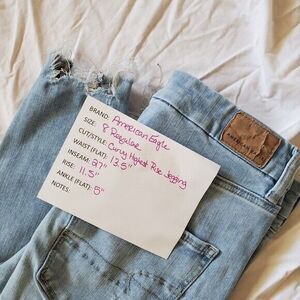 BRAND: American Eagle
SIZE: 8 Regular
CUT/STYLE: Curvy Highest Rise Jegging
WAIST (FLAT): 13.5"
INSEAM: 27"
RISE: 11.5"
ANKLE (FLAT): 5"
NOTES: